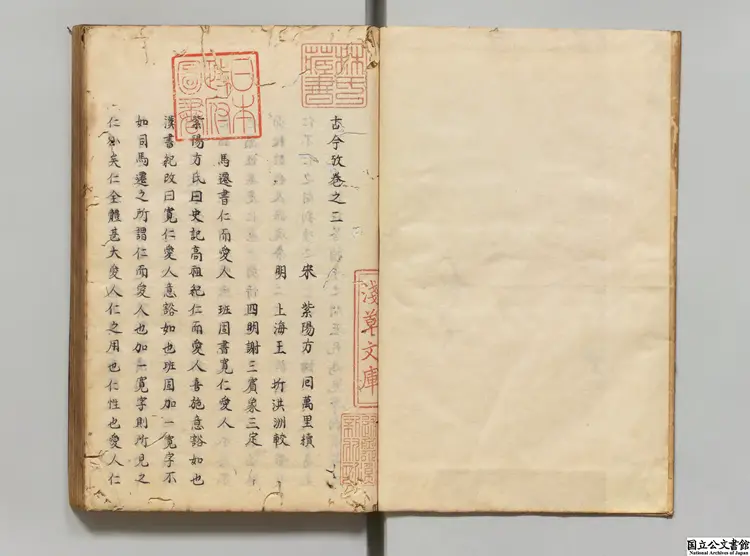 古今攷卷之三
宋 紫陽方 回萬里 續
明 上海王 圻洪洲 較
四明謝三賓象三定
馬遷書仁而愛人 班固書寬仁愛人
紫陽方氏曰史記高祖紀仁而愛人喜施意豁如也
漢書紀改曰寬仁愛人意豁如也班固加一寬字不
如司馬遷之所謂仁而愛人也加一寬字則所見之
仁小矣仁全體甚大愛人仁之用也仁性也愛人仁
日本
圖書
淺草文庫
国立公文書館
National Archives of Japan